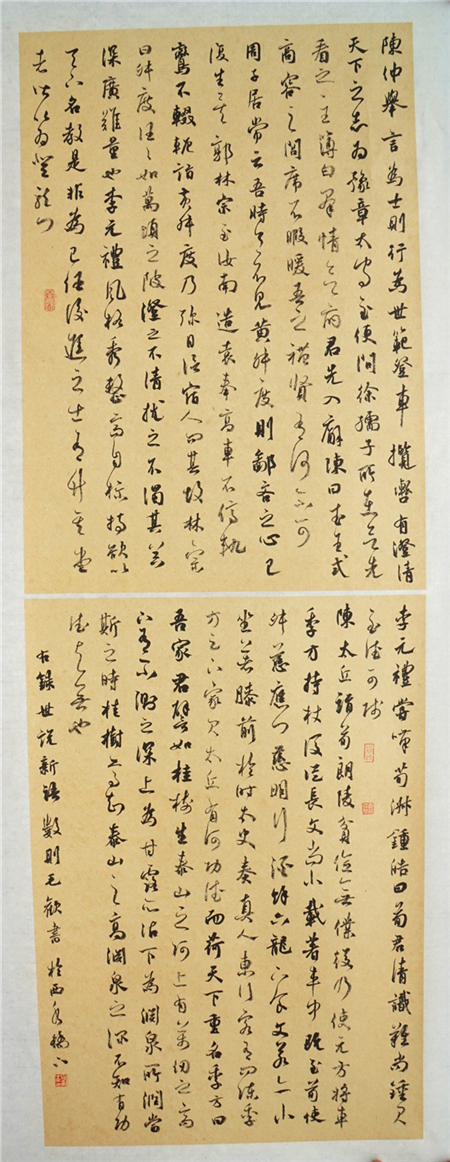 陳仲舉言為士則行為世範登車攬轡有澄清
天下之志為豫章太守至便問徐孺子所在欲先
看之主薄白群情欲府君先入廨陳曰武王式
商容之閭席不暇暖吾之禮賢有何不可
周子居常云吾時月不見黃叔度則鄙吝之心已
復生矣郭林宗至汝南造袁奉高車不停軌
鸞不輟軛詣黃叔度乃彌日信宿人問其故林宗
曰叔度汪汪如萬頃之陂澄之不清擾之不濁其器
深廣難量也李元禮風格秀整高自標持欲以
天下名教是非為己任後進之士有升其堂
者皆以為登龍門
李元禮嘗嘆荀淑鍾皓曰荀君清識難尚鍾君
至德可師
陳太丘詣荀朗陵貧儉無僕役乃使元方將車
季方持杖後從長文尚小載著車中既至荀使
叔慈應門慈明行酒餘六龍下食文若亦小
坐著膝前於時太史奏真人東行客有問陳季
方足下家君太丘有何功德而荷天下重名季方曰
吾家君譬如桂樹生泰山之阿上有萬仞之高
下有不測之深上為甘露所沾下為淵泉所潤當
斯之時桂樹焉知泰山之高淵泉之深不知有功
德與無也
右錄世說新語數則毛歡書於西泠橋下